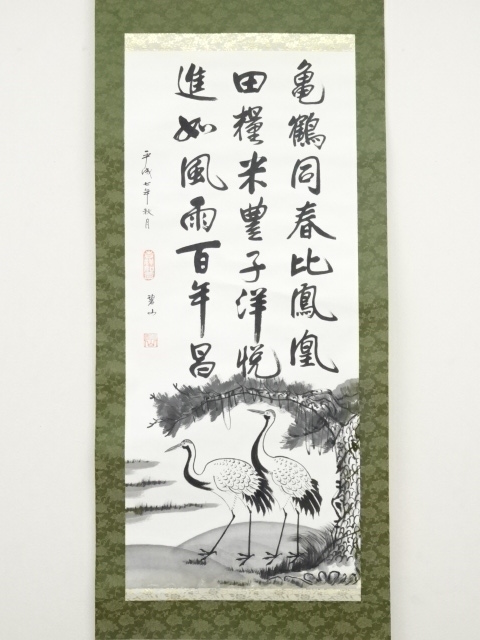 亀鶴同春比鳳凰
田糧米豊子洋悦
進如風雨百年昌
平成七年秋月